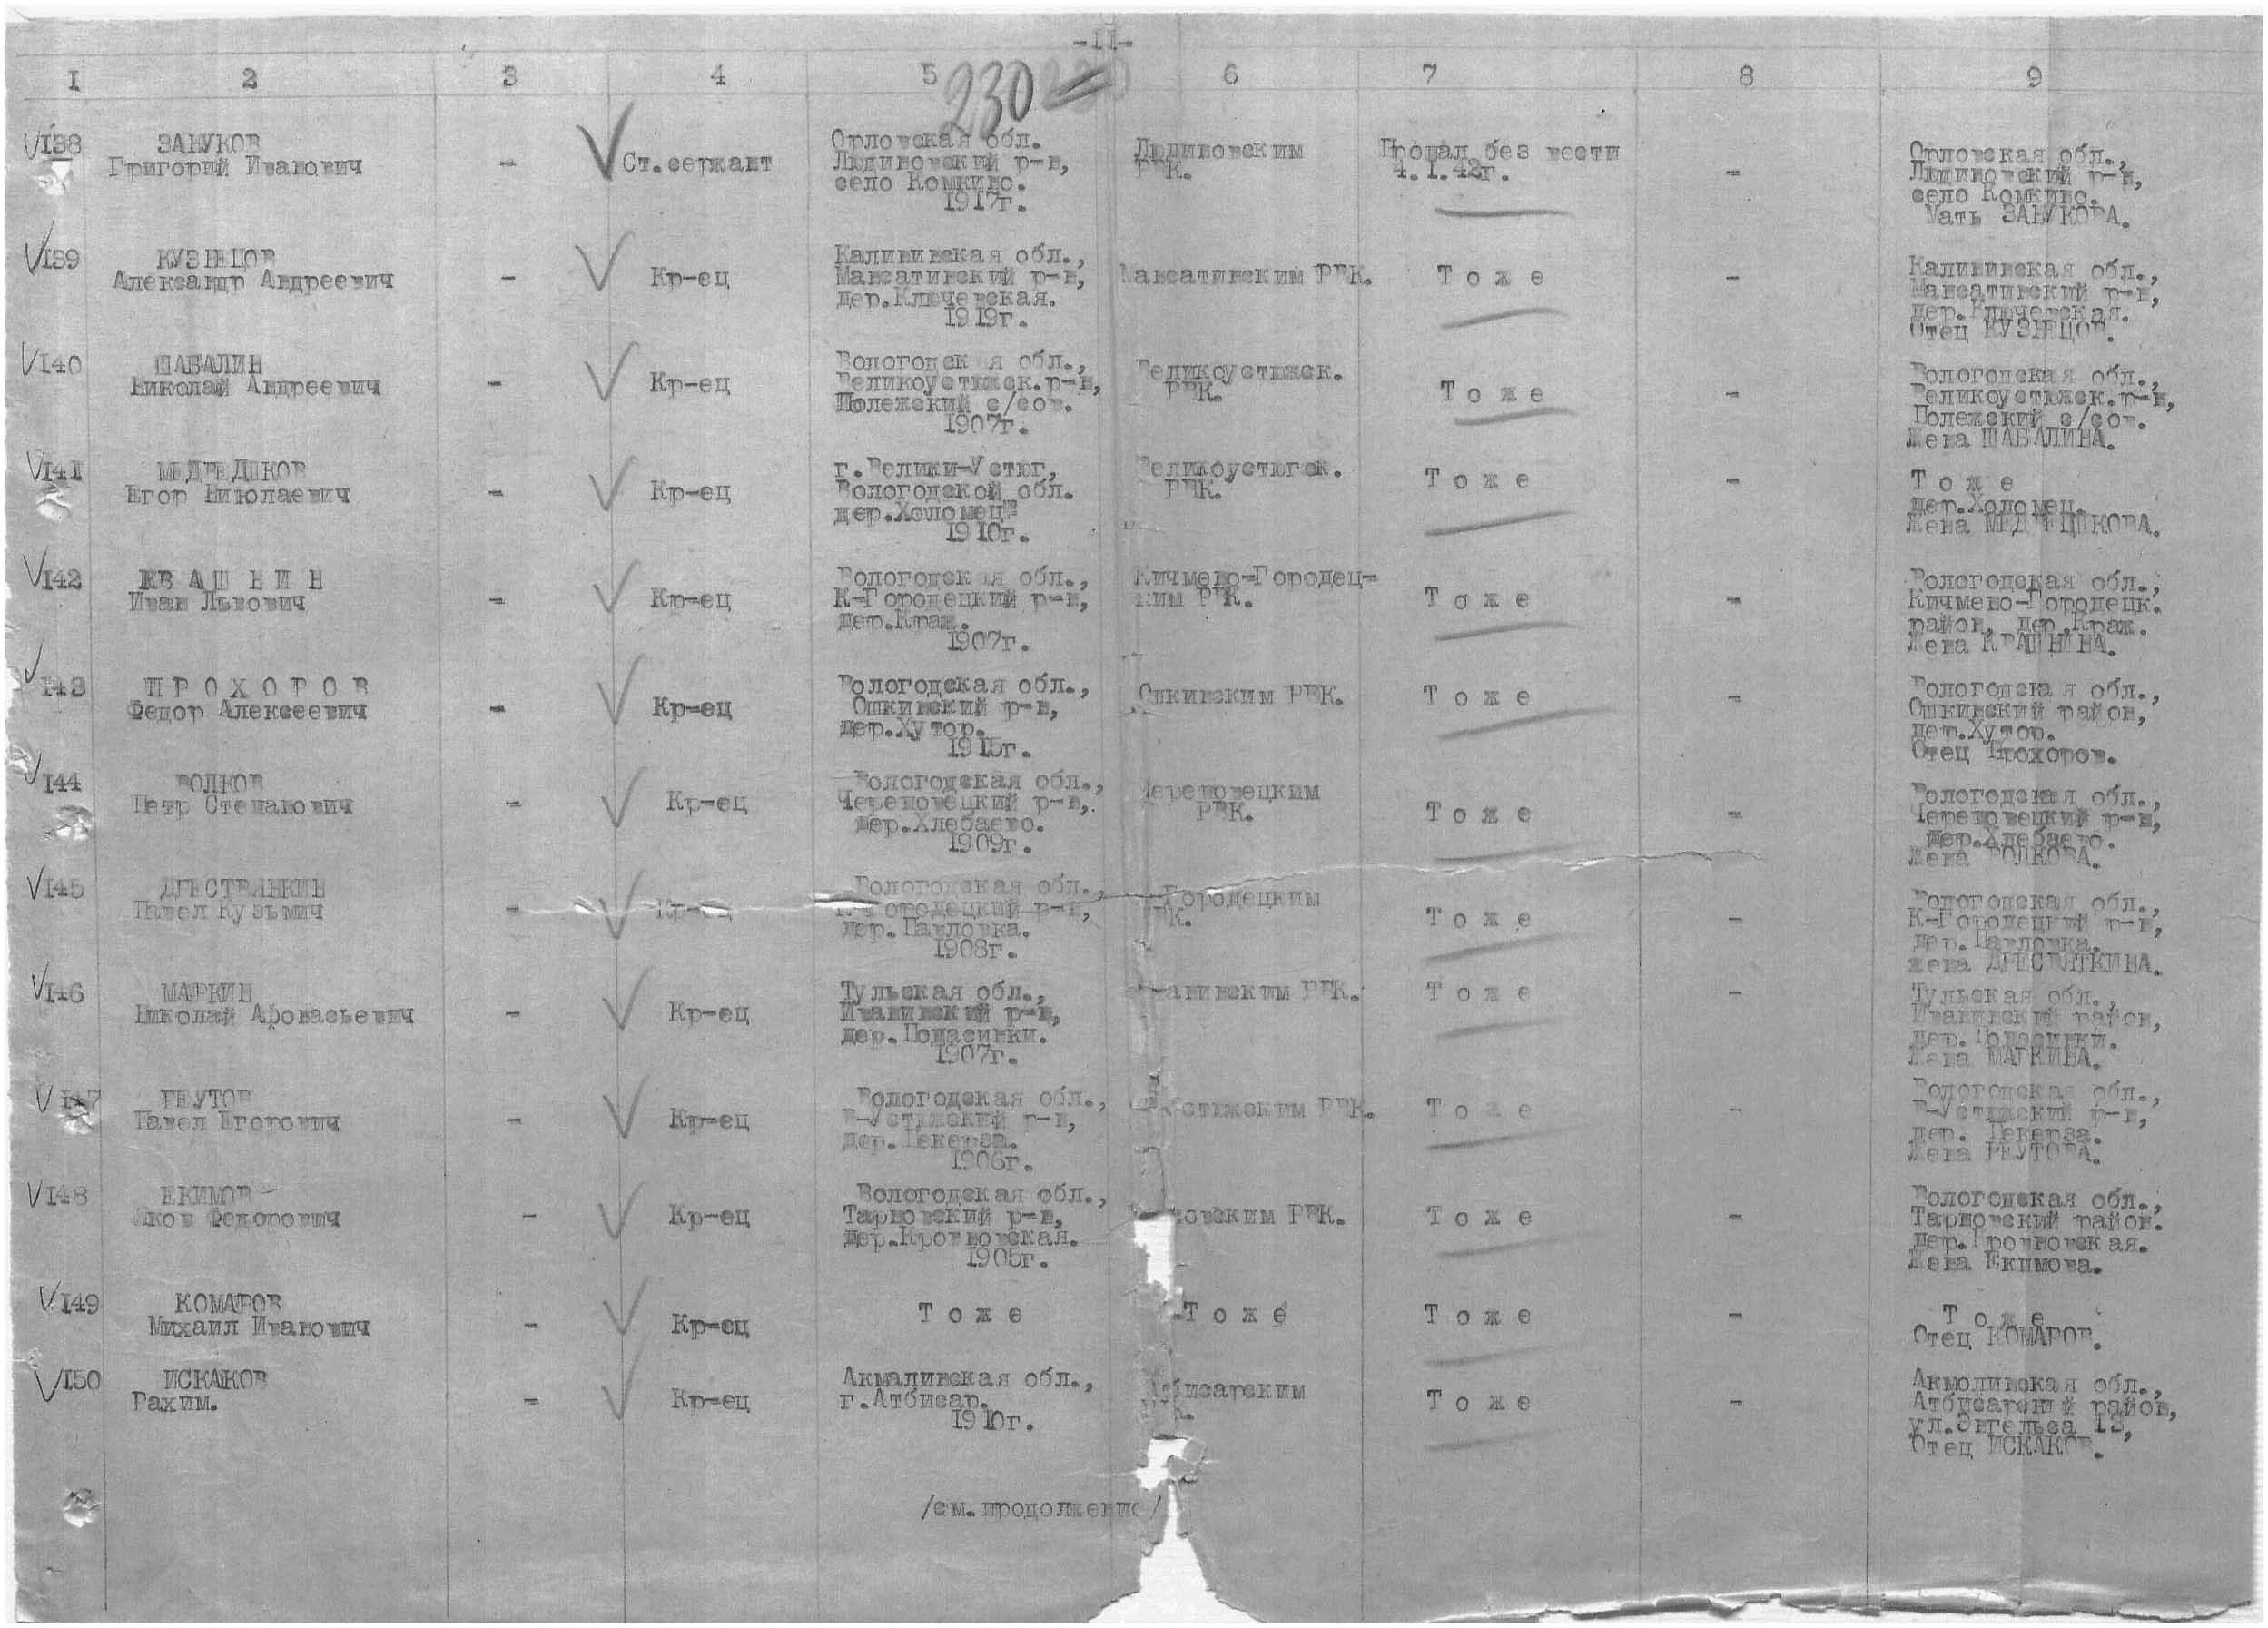 -11-
I 2 3 4 5 6 7 8 9
230
138 ЗАНУКОВ
Григорий Иванович
-
Ст.сержант
Орловская обл.
Людиновский р-н,
село Комкино.
1917г.
Людиновским
РВК.
Пропал без вести
4.1.42г.
-
Орловская обл.,
Людиновский р-н,
село Комкино.
Мать ЗАНУКОВА.
139 КУЗНЕЦОВ
Александр Андреевич
-
Кр-ец
Калининская обл.,
Максатинский р-н,
дер.Ключевская.
1919г.
Максатинским РВК.
Т о ж е
-
Калининская обл.,
Максатинский р-н,
дер.Ключевская.
Отец КУЗНЕЦОВ.
140 ШАБАЛИН
Николай Андреевич
-
Кр-ец
Вологодская обл.,
Великоустюжск.р-н,
Полежский с/сов.
1907г.
Великоустюжск.
РВК.
Т о ж е
-
Вологодская обл.,
Великоустюжск.р-н,
Полежский с/сов.
Жена ШАБАЛИНА.
141 МЕДВЕДШКОВ
Егор Николаевич
-
Кр-ец
г.Велики-Устюг,
Вологодской обл.
дер.Холомец
1910г.
Великоустюгск.
РВК.
Т о ж е
-
Т о ж е
дер.Холомец.
Жена
142 К В А Ш Н И Н
Иван Львович
-
Кр-ец
Вологодская обл.,
К-Городецкий р-н,
дер.Краж.
1907г.
Кичмено-Городец-
ким РВК.
Т о ж е
-
Вологодская обл.,
Кичмено-Городецк.
район, дер.Краж.
Жена КВАШНИНА.
143 П Р О Х О Р О В
Федор Алексеевич
-
Кр-ец
Вологодская обл.,
Ошкинский р-н,
дер.Хутор.
1915г.
Ошкинским РВК.
Т о ж е
-
Вологодская обл.,
Ошкинский район,
дер.Хутор.
Отец Прохоров.
144 ВОЛКОВ
Петр Степанович
-
Кр-ец
Вологодская обл.,
Череповецкий р-н,
дер.Хлебаево.
1909г.
Череповецким
РВК.
Т о ж е
-
Вологодская обл.,
Череповецкий р-н,
дер.Хлебаево.
Жена ВОЛКОВА.
145 ДРЕСТВЯНКИН
Павел Кузьмич
-
Кр-ец
Вологодская обл.,
К-Городецкий р-н,
дер.Павловка.
1908г.
Городецким
РВК.
Т о ж е
-
Вологодская обл.,
К-Городецкий р-н,
дер.Павловка.
жена ДРЕСВЯТКИНА.
146 МАРКИН
Николай Афонасьевич
-
Кр-ец
Тульская обл.,
Иванинский р-н,
дер.Подасинки.
1907г.
ванинским РВК.
Т о ж е
-
Тульская обл.,
Иванинский район,
дер.Подасинки.
Жена МАРКИНА.
147 РЕУТОВ
Павел Егорович
-
Кр-ец
Вологодская обл.,
В-Устюжский р-н,
дер.Пекерза.
1906г.
стюжским РВК.
Т о ж е
-
Вологодская обл.,
В-Устюжский р-н,
дер. Пекерза.
Жена РЕУТОВА.
148 ЕКИМОВ
Яков Федорович
-
Кр-ец
Вологодская обл.,
Тарновский р-н,
дер.Кровновская.
1905г.
овским РВК.
Т о ж е
-
Вологодская обл.,
Тарновский район.
дер.Кровновская.
Жена Екимова.
149 КОМАРОВ
Михаил Иванович
-
Кр-ец
Т о ж е
Т о ж е
Т о ж е
-
Т о ж е
Отец КОМАРОВ.
150 ИСКАКОВ
Рахим.
-
Кр-ец
Акмалинская обл.,
г.Атбисар.
1910г.
Атбисарским
Т о ж е
-
Акмолинская обл.,
Атбисарский район,
ул.Энгельса 13,
Отец ИСКАКОВ.
/см.продолжение/